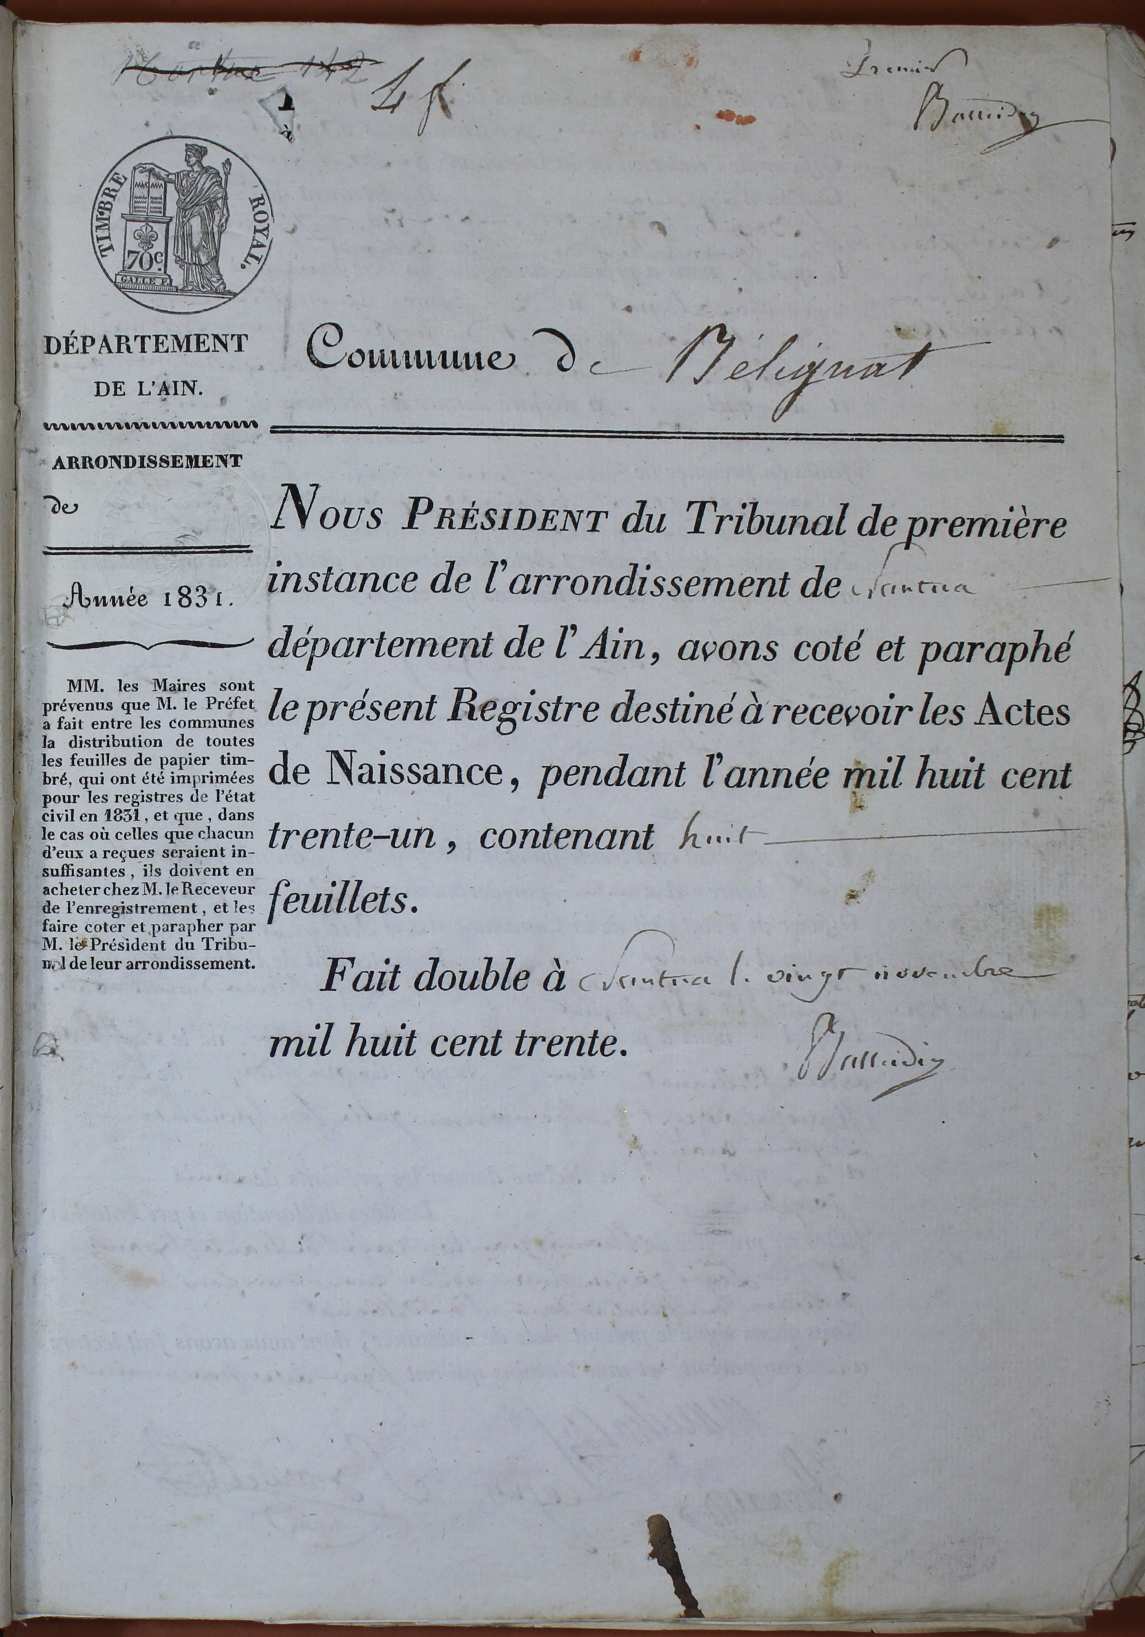 4 f
Premier
TIMBRE ROYAL.
70 c.
DÉPARTEMENT
DE L'AIN.
Commune de Béliguat
ARRONDISSEMENT
de
Année 1831.
MM. les Maires sont
prévenus que M. le Préfet
a fait entre les communes
la distribution de toutes
les feuilles de papier tim-
bré, qui ont été imprimées
pour les registres de l'état
civil en 1831, et que, dans
le cas où celles que chacun
d'eux a reçues seraient in-
suffisantes, ils doivent en
acheter chez M. le Receveur
de l'enregistrement, et les
faire coter et parapher par
M. le Président du Tribu-
nal de leur arrondissement.
NOUS PRÉSIDENT du Tribunal de première
instance de l'arrondissement de Nantua
département de l'Ain, avons coté et paraphé
le présent Registre destiné à recevoir les Actes
de Naissance, pendant l'année mil huit cent
trente-un, contenant huit
feuillets.
Fait double à Nantua le vingt novembre
mil huit cent trente.